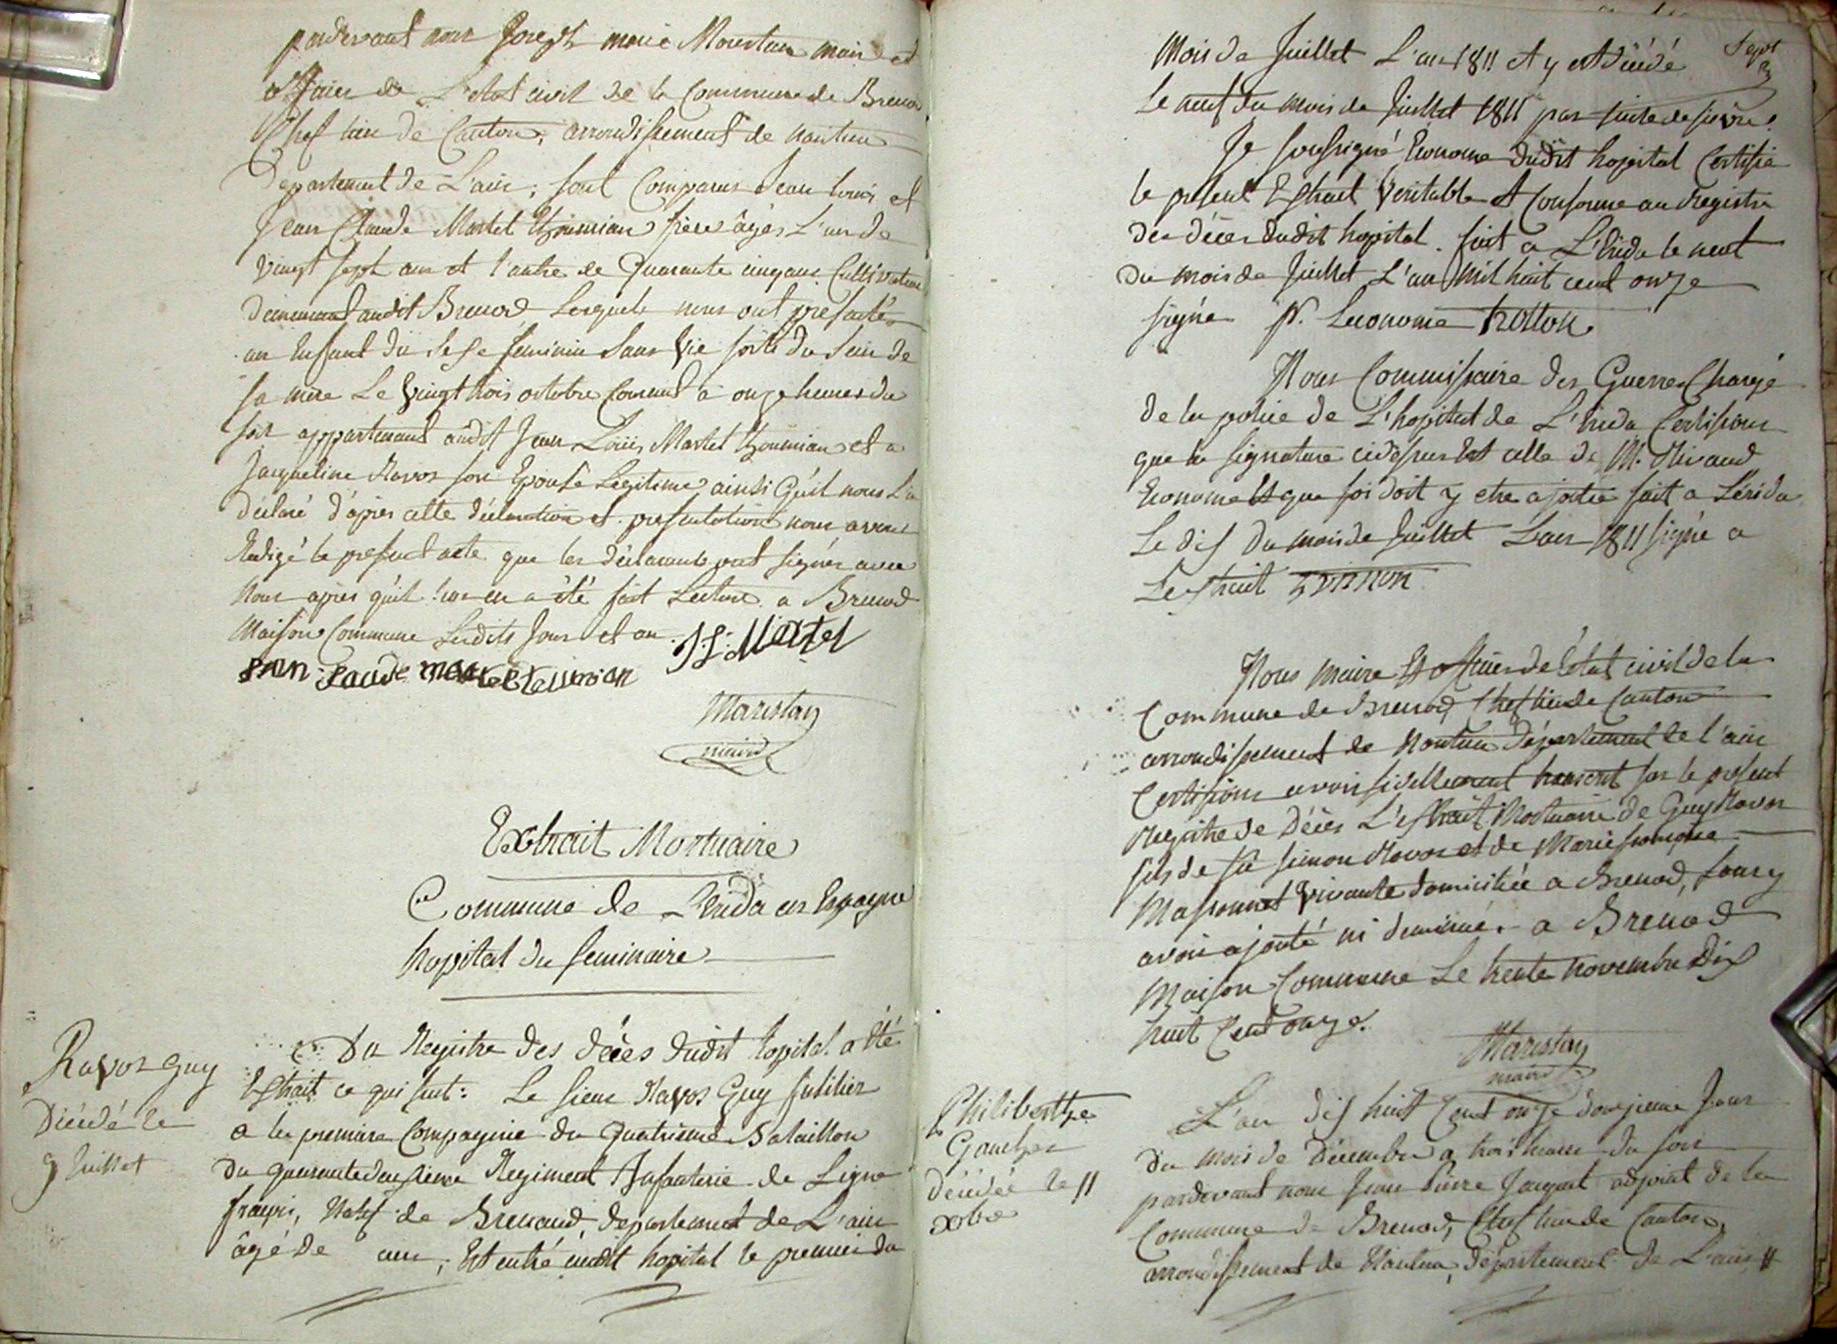 pardevant nous Joseph marie Maristan maire et
officier de L'etat civil de la Commune de Brenod
Chef lieu de Canton, arrondissement de nantua
Departement de L'ain, sont Comparus Jean Louis et
Jean Claude Martel thoumian frere âgés L'un de
vingt sept ans et l'autre de quarante cinq ans Cultivateurs
demeurant audit Brenod Lesquels nous ont présentés
un Enfant du sexe feminin Sans Vie sorti du Sein de
sa mere Le vingt trois octobre Courant a onze heures du
soir appartenant audit Jean Louis Martel thoumian et a
Jacqueline Ravoz son Epouse Legitime ainsi qu'il nous L'a
déclaré d'après cette déclaration et présentation nous avons
Redigé le present acte que les déclarants ont signés avec
Nous après qu'il leur en a été fait Lecture a Brenod
Maison Commune Lesdits Jour et an. J. L. Martel
Jean Claude martel
Maristan
maire
Extrait Mortuaire
Commune de Lérida en Espagne
hopital du seminaire
Ravoz guy
Décédé le
9 Juillet
Du Registre des décès dudit hopital a été
Extrait ce qui suit: Le sieur Ravoz Guy fusilier
a la premiere Compagnie du quatrieme Bataillon
Du quarantedeuxieme Regiment Infanterie de Ligne
français, Natif de Brenaud departement de L'ain
âgé De ans, Est entré audit hopital le premier du
Sept
Mois de Juillet L'an 1811 et y est décédé
Le neuf du mois de Juillet 1811 par suite de fievre.
Je soussigné Econome dudit hopital Certifie
le présent Extrait Veritable et Conforme au Registre
des décès dudit hopital. fait a Lérida le neuf
du mois de Juillet L'an Mil huit cent onze
signé Pr. Leconome
Nous Commissaire des Guerres Chargé
de la police de L'hopital de Lérida Certifions
que la signature cidessus Est celle de M.
Econome Et que foi doit y etre ajoutée fait a Lérida
Le dix du mois de Juillet L'an 1811 signé a
L'Extrait
Nous maire Et officier de L'état civil de la
Commune de Brenod, Chef lieu de Canton
arrondissement de Nantua Département de l'ain
Certifions avoir fidellement transcrit sur le présent
Registre de Décès L'Extrait Mortuaire de Guy Ravoz
fils de feu simon Ravoz et de Marie françoise
Massonnet vivante domiciliée a Brenod, sans y
avoir ajouté ni diminué. a Brenod
Maison Commune Le trente Novembre Dix
huit Cent onze.
Maristan
maire
Philiberthe
décédée le 11
xbre
L'an dix huit Cent onze douzieme Jour
Du mois de Décembre a trois heures du soir
pardevant nous Jean Pierre Jacquet adjoint de la
Commune de Brenod, Chef lieu de Canton,
arrondissement de Nantua, département de L'ain //